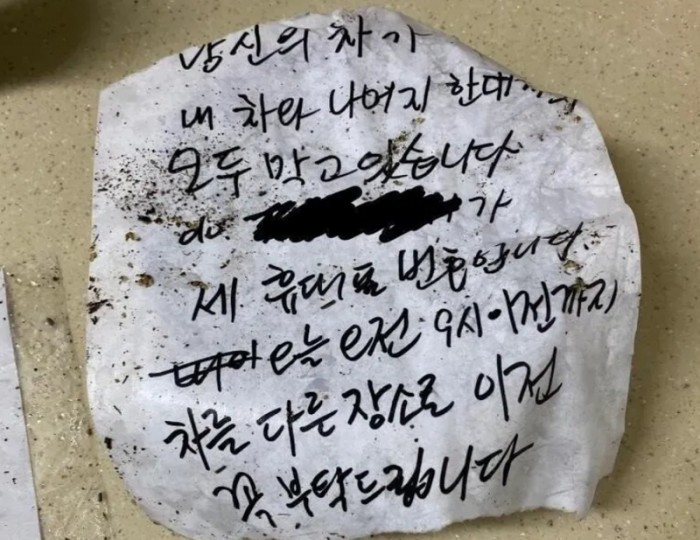 당신의 차가
내 차와 나머지 한대까지
모두 막고 있습니다
가
세 휴대폰 번호입니다.
오늘 오전 9시 이전까지
차를 다른 장소로 이전
꼭 부탁드립니다